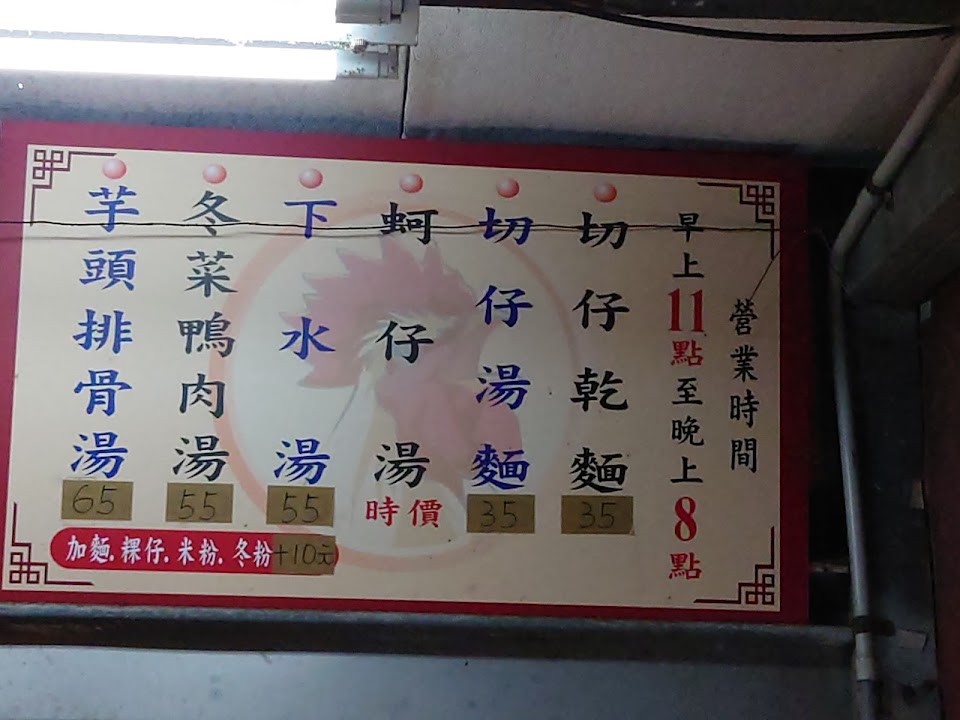 營業時間
早上11點至晚上8點
切仔乾麵
35
切仔湯麵
35
蚵仔湯
時價
下水湯
55
冬菜鴨肉湯
55
芋頭排骨湯
65
加麵.粿仔.米粉.冬粉+10元